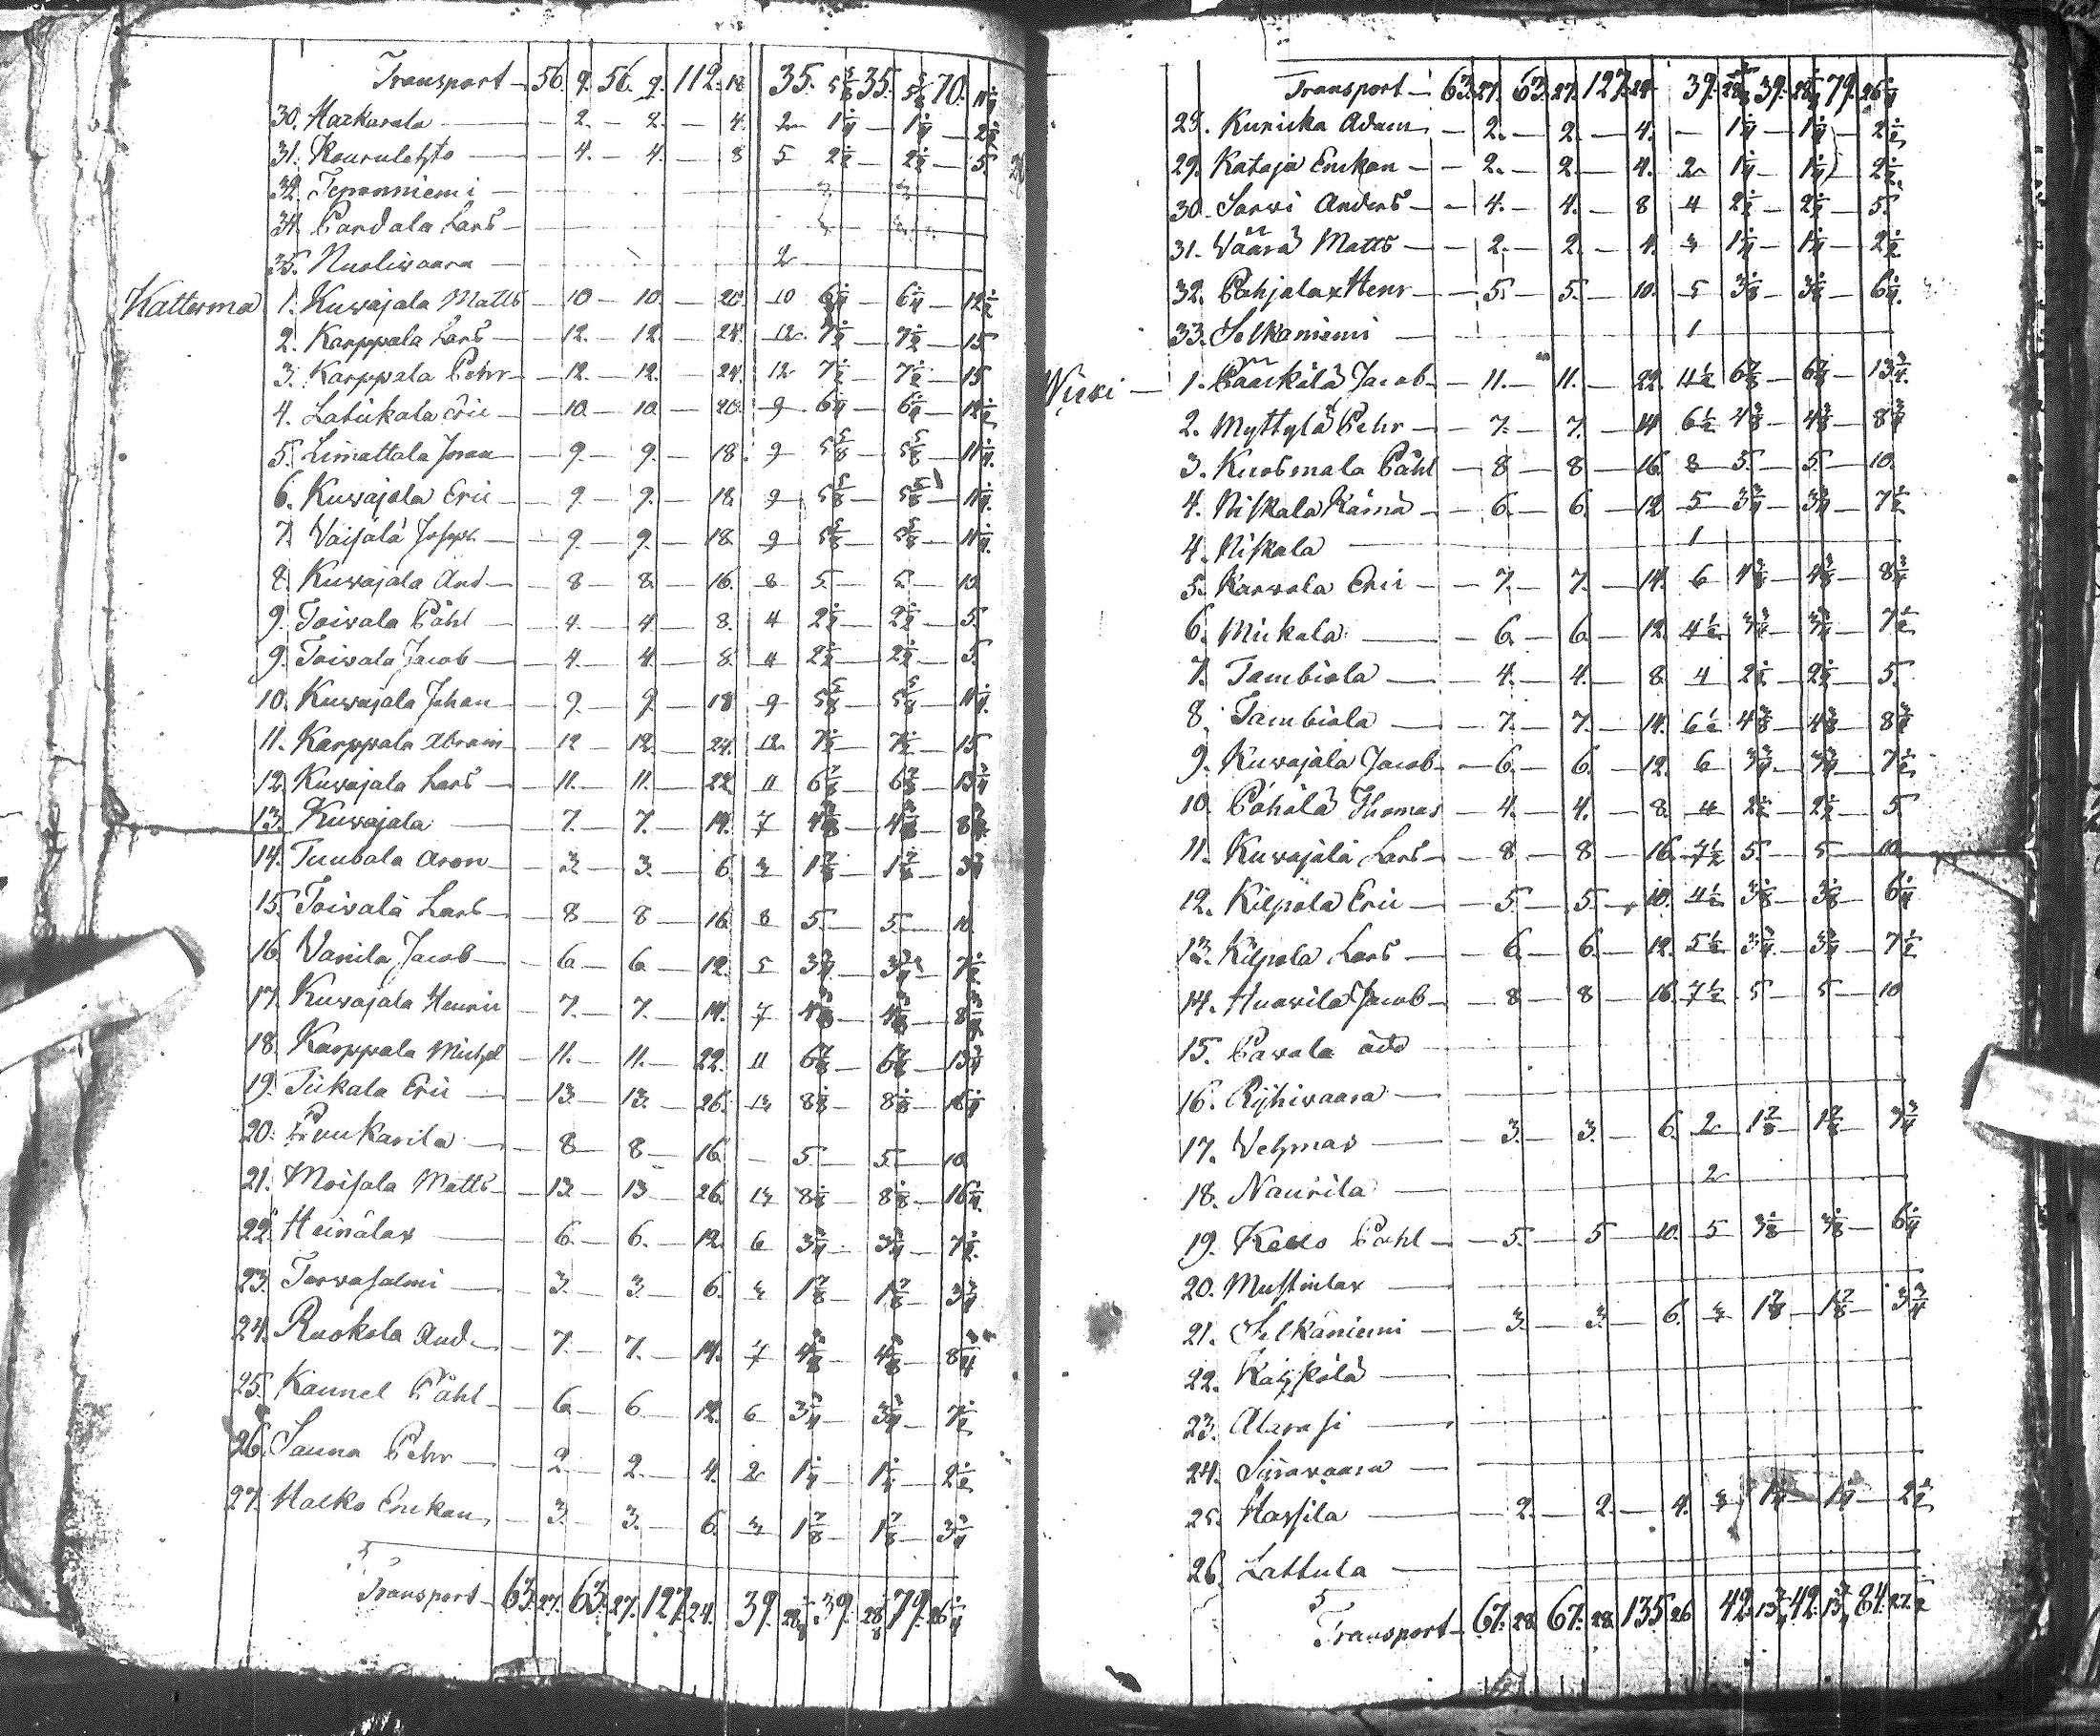 Transport — 56. 9. 56. 9. 112. 18 35. 5 5/8 35. 5 5/8 70. 11 1/4
30. Harkurala — 2. — 2. — 4. 2 1 1/4 — 1 1/4 — 2 1/2
31. Kourulehto — 4. — 4. — 8 5 2 1/2 — 2 1/2 — 5.
32. Teponniemi —
34. Pardala Lars —
35. Nuoliwaara — 2
Katterma 1. Kuwajala Matts — 10 — 10. — 20. 10 6 1/4 — 6 1/4 — 12 1/2
2. Karppala Lars — 12. — 12. — 24. 12. 7 1/2 — 7 1/2 — 15
3. Karppala Pehr — 12. — 12. — 24. 12 7 1/2 — 7 1/2 — 15
4. Latukala Eric — 10. — 10. — 20. 9 6 1/4 — 6 1/4 — 12 1/2
5. Limattala Joran — 9. — 9. — 18. 9 5 5/8 — 5 5/8 — 11 1/4
6. Kuwajala Eric — 9. — 9. — 18. 9 5 5/8 — 5 5/8 — 11 1/4
7. Väisälä Joseph — 9. — 9. — 18. 9 5 5/8 — 5 5/8 — 11 1/4
8. Kuwajala And — 8 — 8. — 16. 8 5. — 5. — 10
9. Toiwala Påhl — 4. — 4. — 8. 4 2 1/2 — 2 1/2 — 5.
9. Toiwala Jacob — 4. — 4. — 8. 4 2 1/2 — 2 1/2 — 5.
10. Kuwajala Johan — 9. — 9. — 18 9 5 5/8 — 5 5/8 — 11 1/4
11. Karppala Abram — 12 — 12. — 24. 12 7 1/2 — 7 1/2 — 15
12. Kuwajala Lars — 11. — 11. — 22 11 6 7/8 — 6 7/8 — 13 3/4
13. Kuwajala — 7. — 7. — 14. 7 4 3/8 — 4 3/8 — 8 3/4
14. Tuubala Aron — 3 — 3. — 6. 3 1 7/8 — 1 7/8 — 3 3/4
15. Toivala Lars — 8 — 8 — 16. 8 5. — 5. — 10.
16. Vanila Jacob — 6 — 6 — 12. 5 3 3/4 — 3 3/4 — 7 1/2
17. Kuwajala Henric — 7. — 7. — 14. 7 4 3/8 — 4 3/8 — 8 3/4
18. Karppala Michel — 11. — 11. — 22. 11 6 7/8 — 6 7/8 — 13 3/4
19. Tiikala Eric — 13. — 13. — 26. 13 8 1/8 — 8 1/8 — 16 1/4
20. Puukarila — 8 — 8 — 16. — 5. — 5. — 10.
21. Moisala Matts — 13. — 13 — 26. 13 8 1/8 — 8 1/8 — 16 1/4
22. Heinälax — 6. — 6. — 12. 6 3 3/4 — 3 3/4 — 7 1/2
23. Terwasalmi — 3. — 3. — 6. 3 1 7/8 — 1 7/8 — 3 3/4
24. Ruokola And — 7. — 7. — 14. 7 4 3/8 — 4 3/8 — 8 3/4
25. Kannel Påhl — 6. — 6 — 12. 6 3 3/4 — 3 3/4 — 7 1/2
26. Sauna Pehr — 2. — 2. — 4. 2 1 1/4 — 1 1/4 — 2 1/2
27. Halko Enckan — 3. — 3. — 6. 3 1 7/8 — 1 7/8 — 3 3/4
Transport — 63. 27. 63. 27. 127. 24. 39. 28 39. 28 79. 26 1/4
Transport — 63. 27. 63. 27. 127. 24. 39. 28 39. 28 79. 26 1/4
28. Kunicka Adam — 2. — 2. — 4. — 1 1/4 — 1 1/4 — 2 1/2
29. Kataja Enckan — 2. — 2. — 4. 2 1 1/4 — 1 1/4 — 2 1/2
30. Sarwi Anders — 4. — 4. — 8 4 2 1/2 — 2 1/2 — 5.
31. Väärä Matts — 2. — 2. — 4. 3 1 1/4 — 1 1/4 — 2 1/2
32. Pohjalax Henr — 5. — 5. — 10. 5 3 1/8 — 3 1/8 — 6 1/4
33. Selkäniemi — 1
Wiexi — 1. Pääckilä Jacob — 11. — 11. — 22. 11 1/2 6 7/8 — 6 7/8 — 13 3/4
2. Myttylä Pehr — 7. — 7. — 14 6 1/2 4 3/8 — 4 3/8 — 8 3/4
3. Kuosmala Påhl — 8 — 8 — 16. 8 5. — 5. — 10.
4. Niskala Käinä — 6. — 6. — 12 5 3 3/4 — 3 3/4 — 7 1/2
4. Niskala — 1
5. Karwola Eric — 7. — 7. — 14. 6 4 3/8 — 4 3/8 — 8 3/4
6. Mickala — 6. — 6. — 12 4 1/2 3 3/4 — 3 3/4 — 7 1/2
7. Tambiola — 4. — 4. — 8. 4 2 1/2 — 2 1/2 — 5.
8. Tambiola — 7. — 7. — 14. 6 1/2 4 3/8 — 4 3/8 — 8 3/4
9. Kuwajala Jacob — 6. — 6. — 12. 6 3 3/4 — 3 3/4 — 7 1/2
10. Påhölä Thomas — 4. — 4. — 8. 4 2 1/2 — 2 1/2 — 5
11. Kuwajala Lars — 8 — 8 — 16. 7 1/2 5. — 5 — 10.
12. Kilpola Eric — 5. — 5. — 10. 4 1/2 3 1/8 — 3 1/8 — 6 1/4
13. Kilpola Lars — 6. — 6. — 12. 5 1/2 3 3/4 — 3 3/4 — 7 1/2
14. Huowila Jacob — 8 — 8 — 16. 7 1/2 5 — 5 — 10
15. Pawala öde
16. Ryhiwaara —
17. Vehmas — 3. — 3. — 6. 2 1 7/8 — 1 7/8 — 3 3/4
18. Naurila — 2
19. Kello Påhl — 5. — 5 — 10. 5 3 1/8 — 3 1/8 — 6 1/4
20. Mustinlax —
21. Selkäniemi — 3. — 3. — 6. 3 1 7/8 — 1 7/8 — 3 3/4
22. Käpkölä —
23. Alavasi —
24. Sinavaara —
25. Hassila — 2. — 2. — 4. 3 1 1/4 — 1 1/4 — 2 1/2
26. Lattula —
Transport — 67. 28. 67. 28. 135. 26 42. 13 3/4 42. 13 3/4 84. 27 1/2